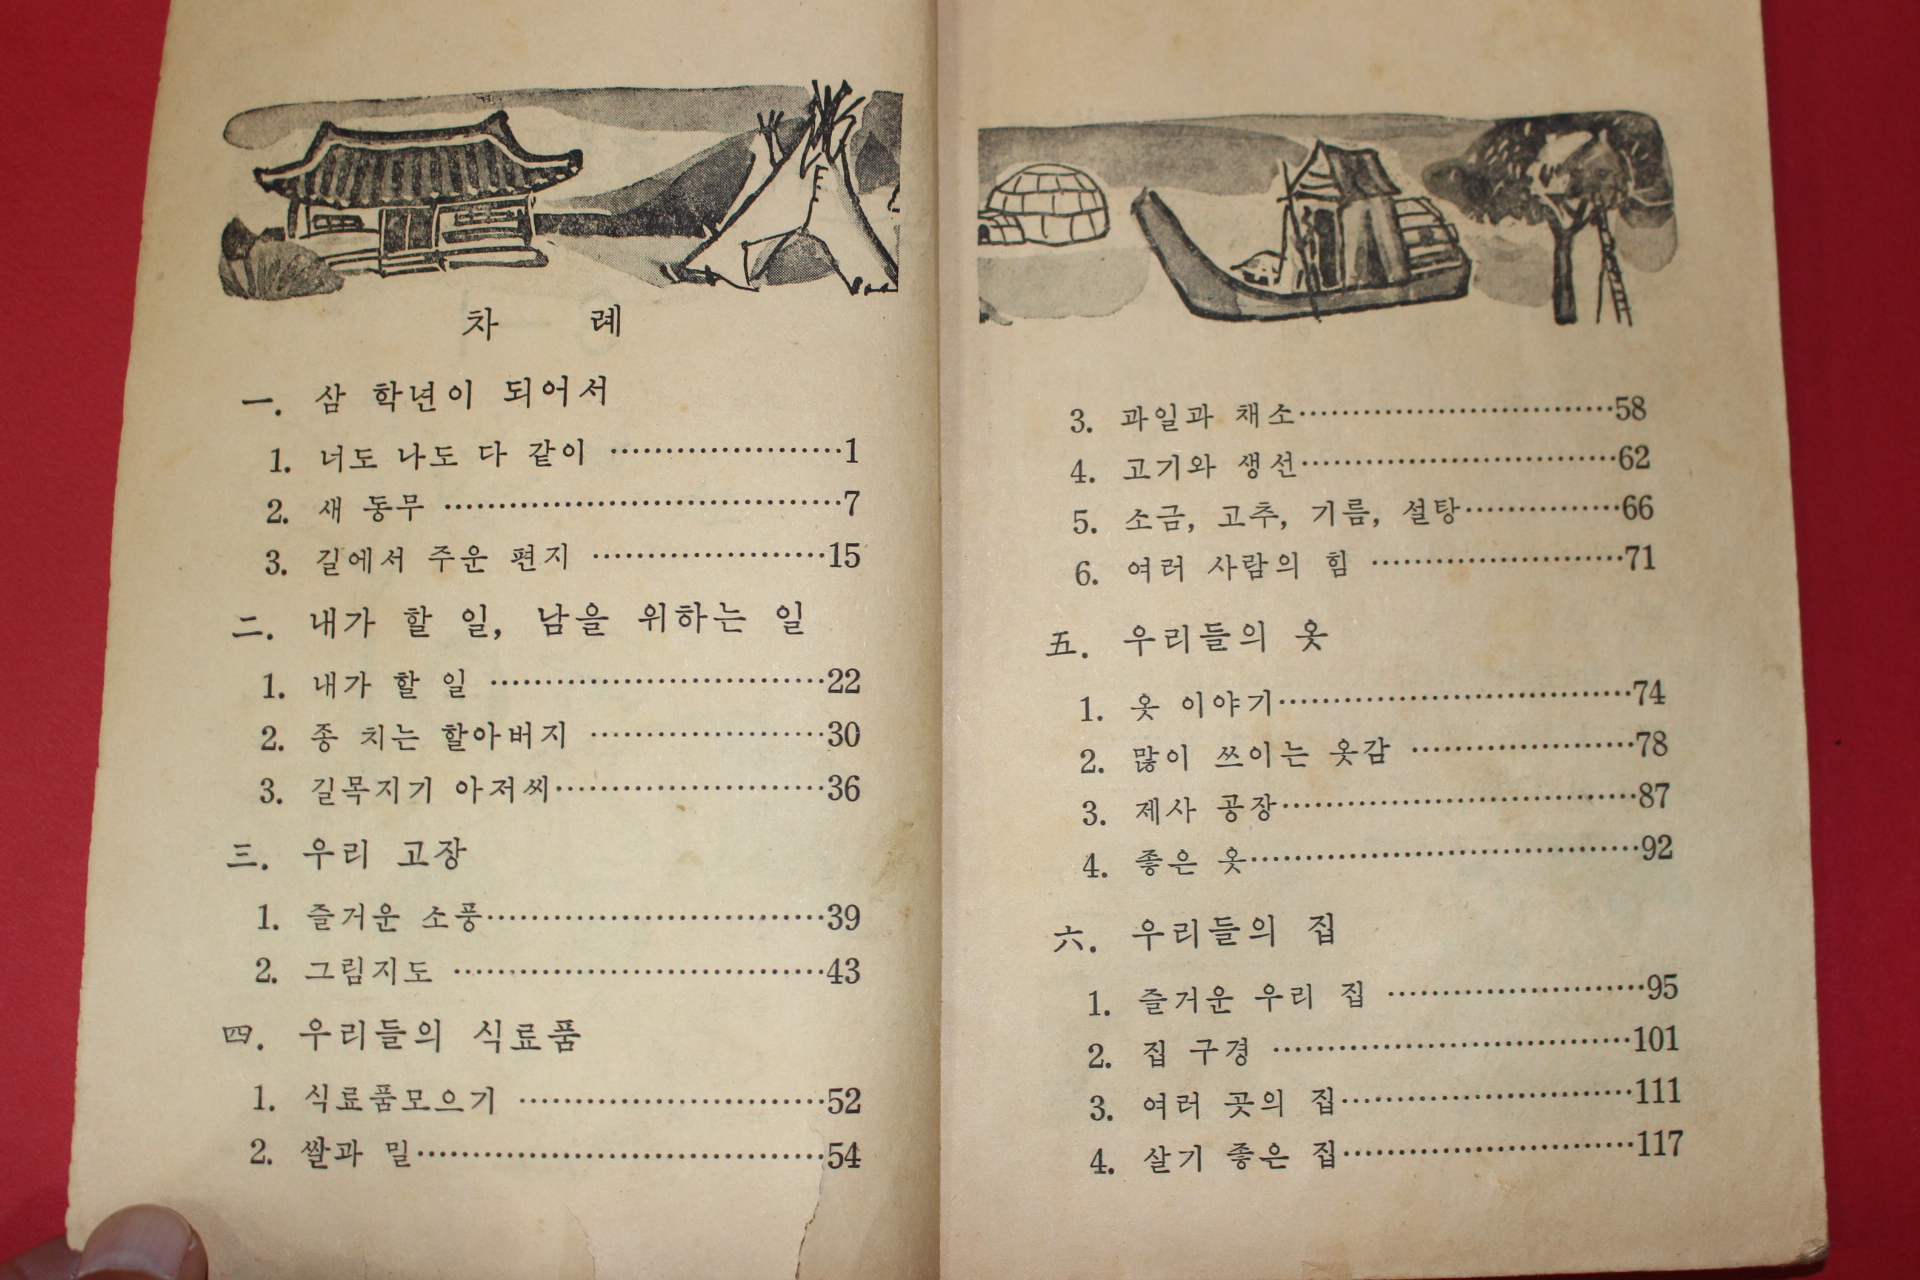 차 례
一. 삼 학년이 되어서
1. 너도 나도 다 같이 ························1
2. 새 동무 ········································7
3. 길에서 주운 편지 ························15
二. 내가 할 일, 남을 위하는 일
1. 내가 할 일 ··································22
2. 종 치는 할아버지 ························30
3. 길목지기 아저씨···························36
三. 우리 고장
1. 즐거운 소풍··································39
2. 그림지도 ·····································43
四. 우리들의 식료품
1. 식료품모으기 ·······························52
2. 쌀과 밀········································54
3. 과일과 채소································58
4. 고기와 생선································62
5. 소금, 고추, 기름, 설탕················66
6. 여러 사람의 힘 ·························71
五. 우리들의 옷
1. 옷 이야기····································74
2. 많이 쓰이는 옷감 ······················78
3. 제사 공장····································87
4. 좋은 옷·······································92
六. 우리들의 집
1. 즐거운 우리 집 ··························95
2. 집 구경 ····································101
3. 여러 곳의 집······························111
4. 살기 좋은 집······························117